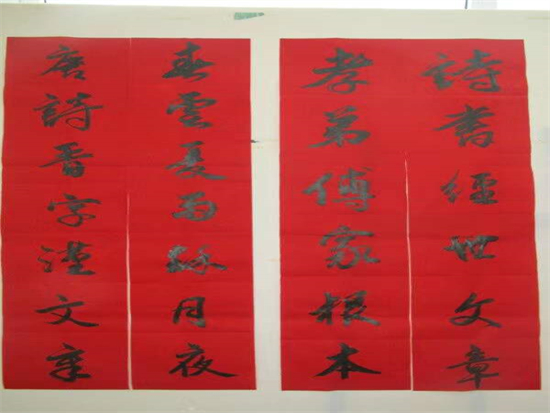 詩書經世文章
孝弟傳家根本
春雲夏雨秋月夜
唐詩晉字漢文章